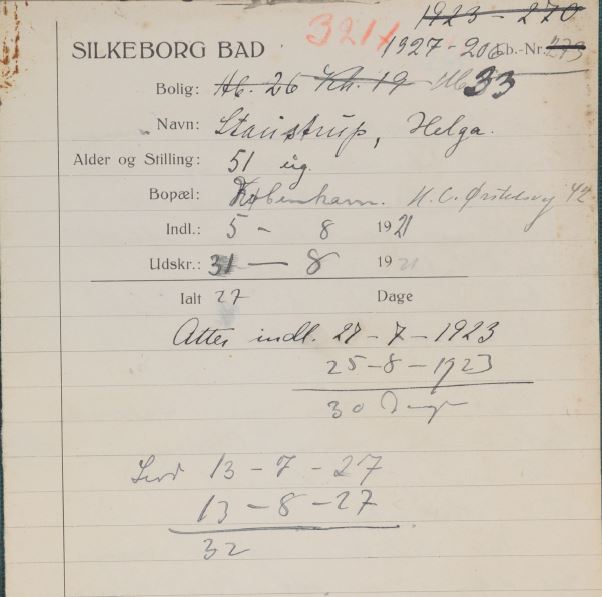 1923 - 270
SILKEBORG BAD 321 1927-206 Lb.-Nr. 273
Bolig: Hb. 26 Kh. 19 Hb 33
Navn: Staustrup, Helga.
Alder og Stilling: 51 ug.
Bopæl: København. H.C. Ørstedsvej 42
Indl.: 5 - 8 1921
Udskr.: 31 - 8 1921
Ialt 27 Dage
Atter indl. 27-7-1923
25-8-1923
30 Dage
13-7-27
13-8-27
32